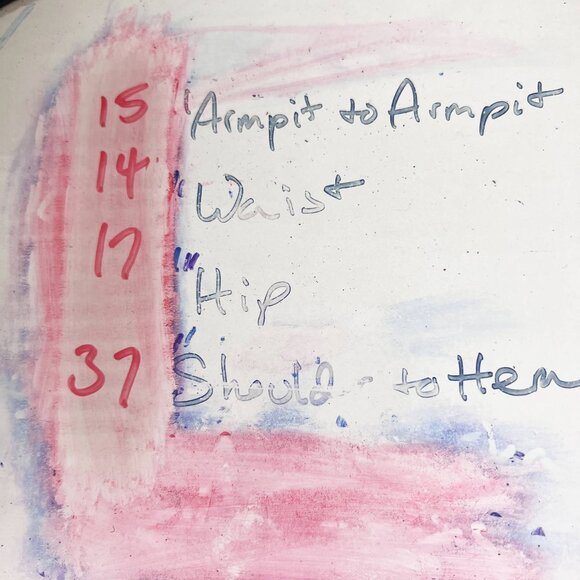 15 "Armpit to Armpit
14 " Waist
17 " Hip
37 " to Hem